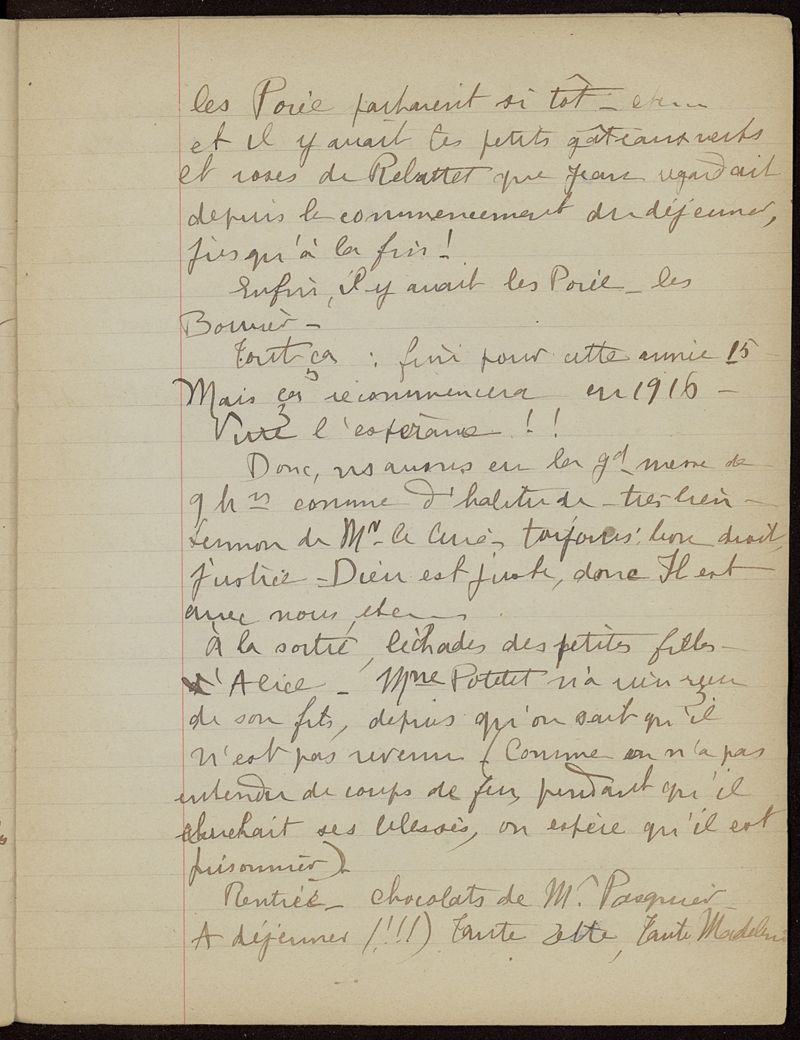 les Porée partaient si tôt - etc...
et il y avait les petits gâteaux verts
et roses de Relattet que Jean regardait
depuis le commencement du déjeuner,
jusqu'à la fin !
Enfin, il y avait les Porée - les
Bonnier -
Tout ça : fini pour cette année 15
Mais ça recommencera en 1916 -
Vive l'espérance ! !
Donc, ns avons eu la gd messe de
9 hrs comme d'habitude - très bien -
Sermon de Mr le Curé, toujours : bon droit,
justice - Dieu est juste, donc Il est
avec nous, etc...
À la sortie, léchades des petites filles -
d'Alice - Mme Potetet n'a rien reçu
de son fils, depuis qu'on sait qu'il
n'est pas revenu (Comme on n'a pas
entendu de coups de feu, pendant qu'il
cherchait ses blessés, on espère qu'il est
prisonnier).
Rentrée - chocolats de Mr Pasquier -
A déjeuner (!!!) Tante Zette, Tante Madeleine